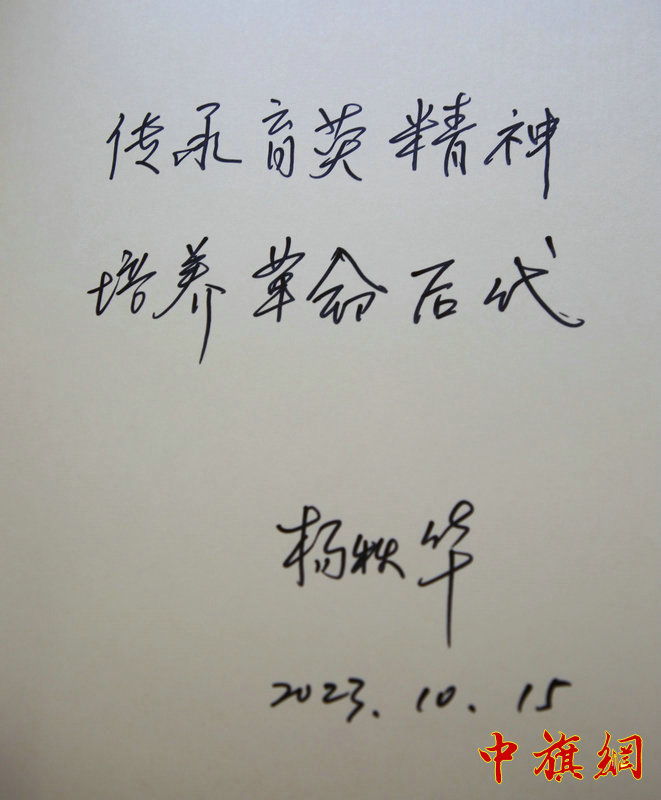 传承育英精神
培养革命后代
杨秋华
2023.10.15
中旗網